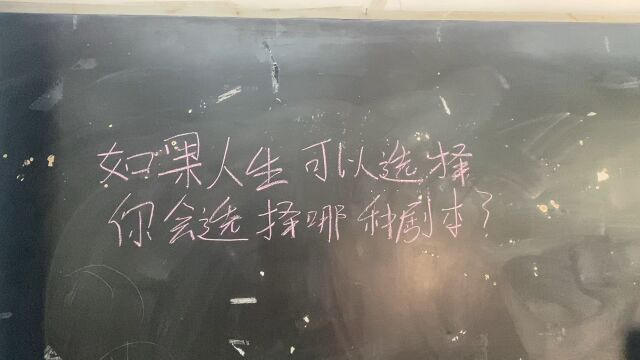 如果人生可以选择
你会选择哪种剧本?